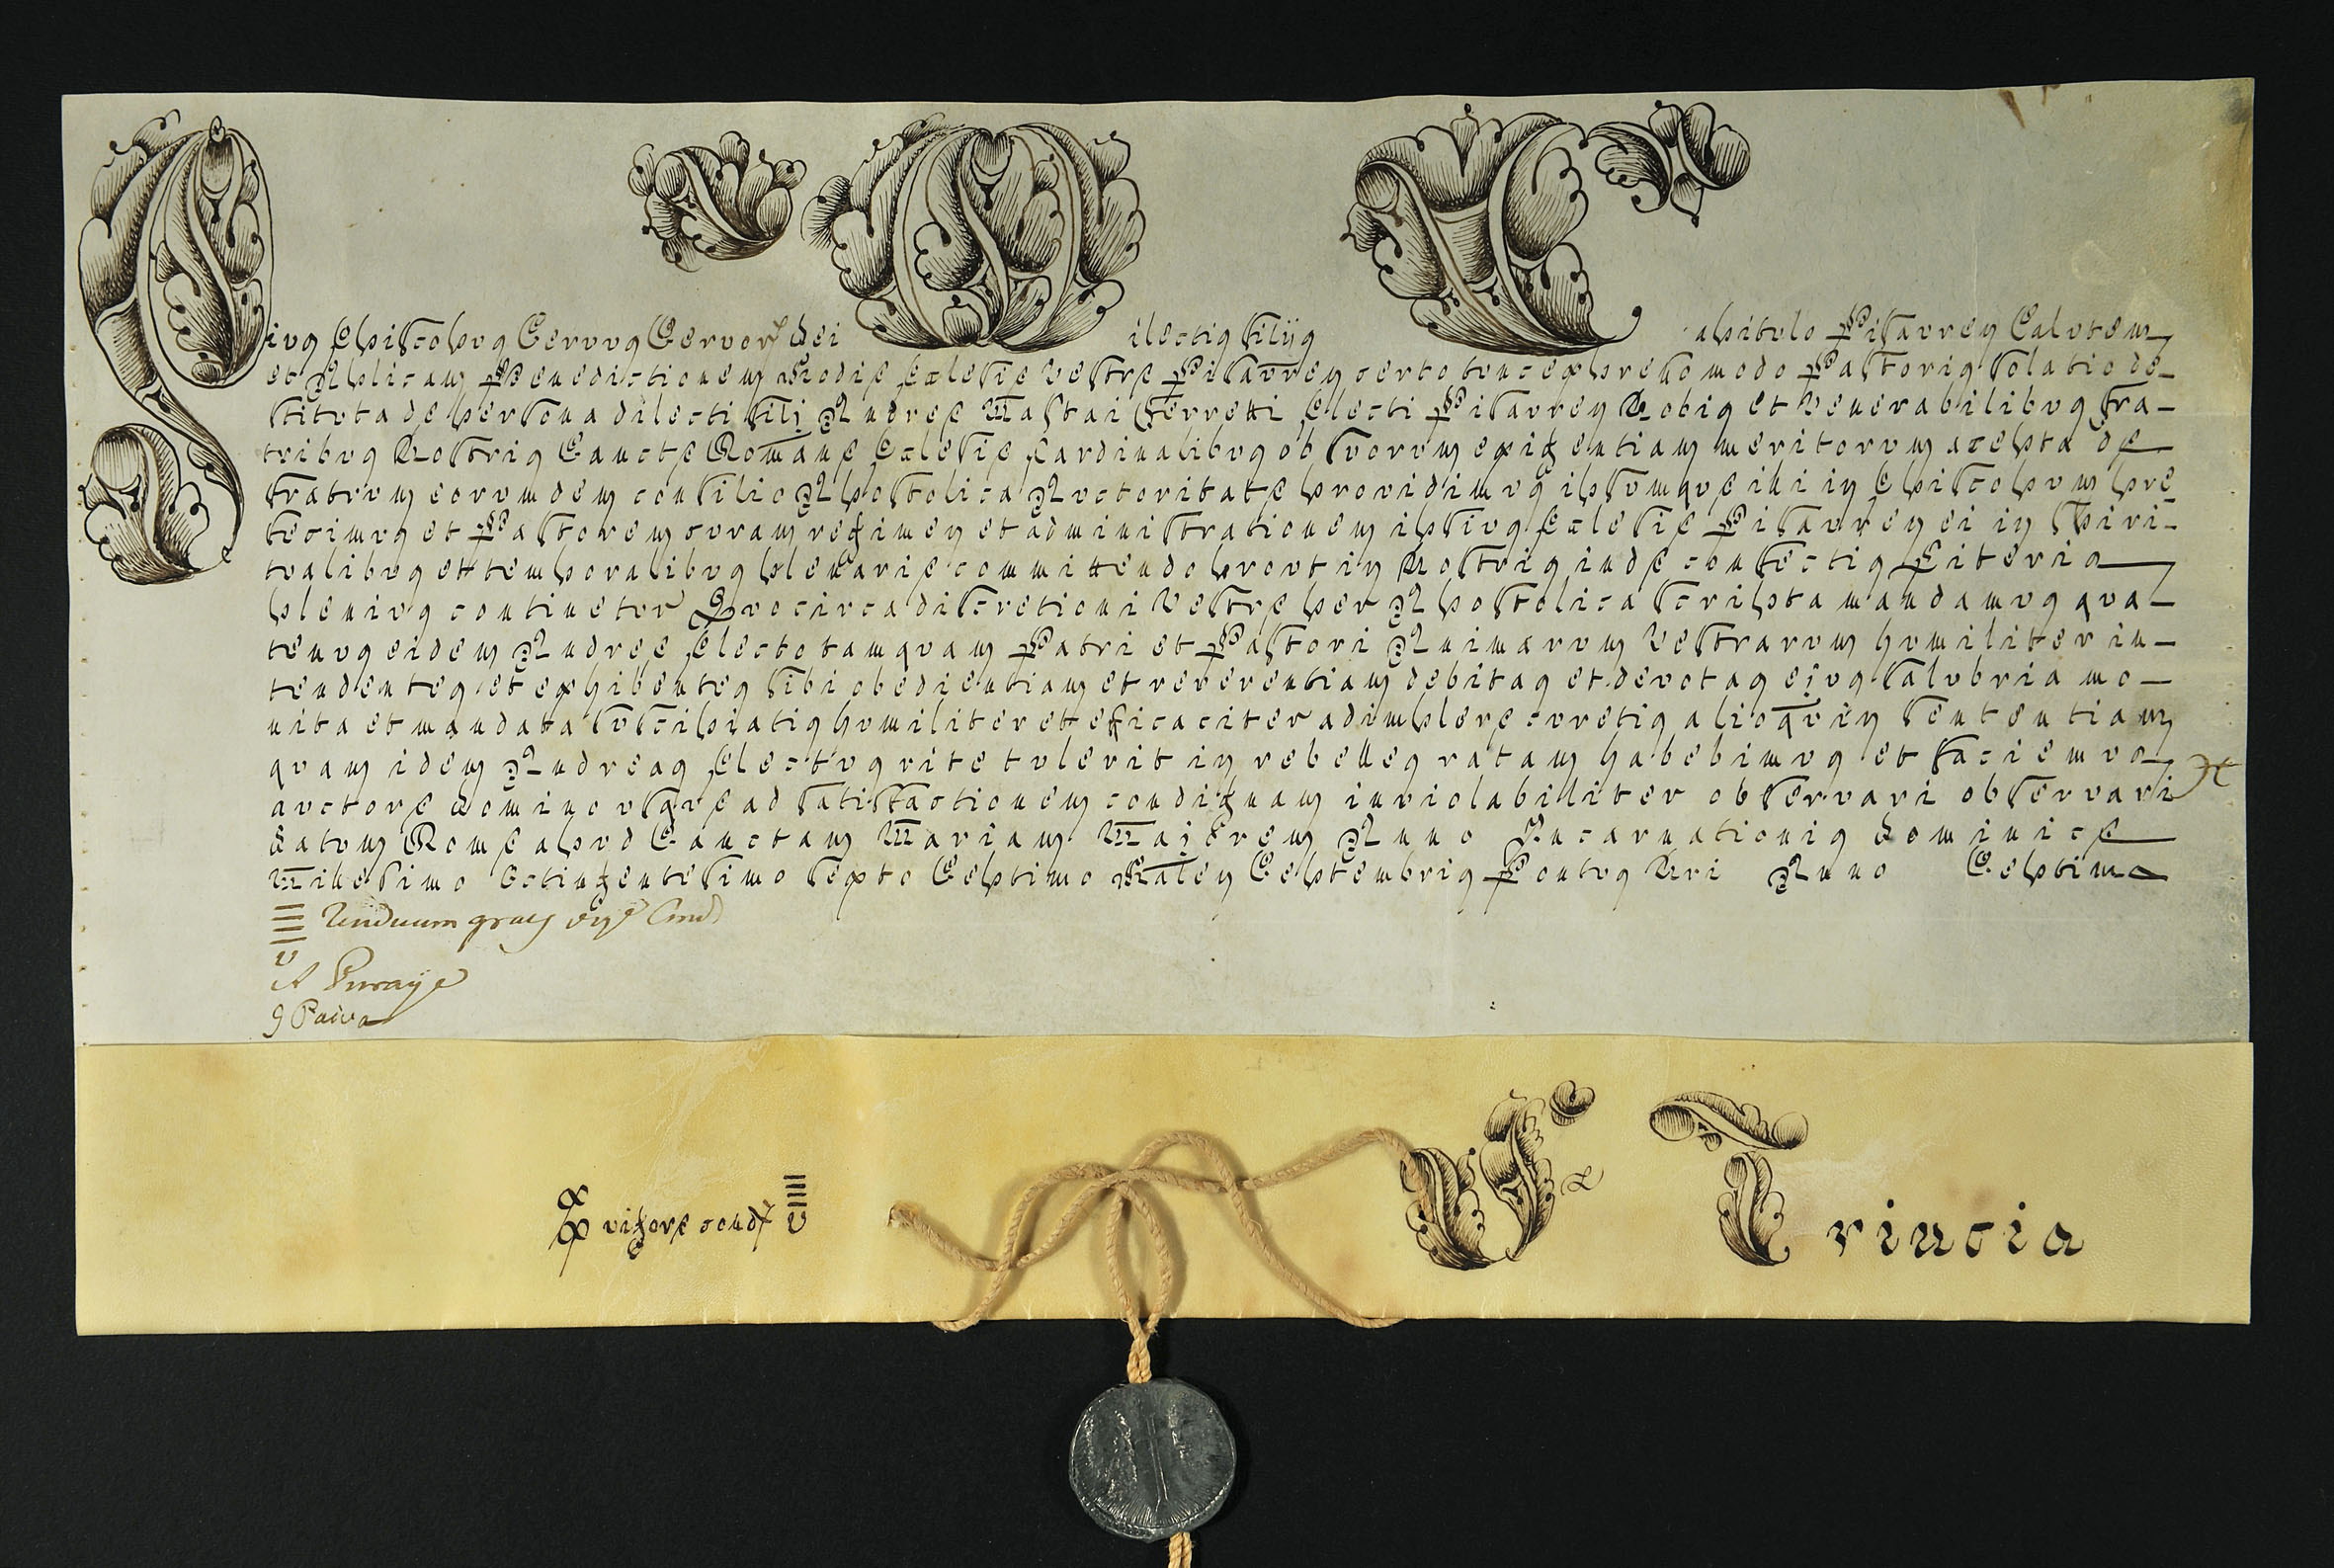 Pius Episcopus Servus Servor Dei Dilectis Filijs Capitulo Pisauren Salutem
et Aplicam Benedictionem Hodie Eclesie Vestre Pisauren certo tunc expresso modo Pastoris solatio de-
stituta de persona dilecti filij Andree Mastai Ferretti Electi Pisauren Nobis et Venerabilibus Fra-
tribus Nostris Sancte Romane Eclesie Cardinalibus ob suorum exigentiam meritorum accepta de
fratrum eorumdem consilio Apostolica Auctoritate providimus ipsumque illi in Episcopum pre-
fecimus et Pastorem curam regimen et administrationem ipsius Eclesie Pisauren ei in Spiri-
tualibus et temporalibus plenarie committendo prout in Nostris inde confectis Literis
plenius continetur Quocirca discretioni Vestre per Apostolica scripta mandamus qua-
tenus eidem Andree Electo tamquam Patri et Pastori Animarum Vestrarum humiliter in-
tendentes et exhibentes sibi obedientiam et reverentiam debitas et devotas ejus salubria mo-
nita et mandata suscipiatis humiliter et eficaciter adimplere curetis alioquin sententiam
quam idem Andreas Electus rite tulerit in rebelles ratam habebimus et faciemus
auctore Domino usque ad satisfactionem condignam inviolabiliter observari observari
Datum Rome apud Sanctam Mariam Majorem Anno Incarnationis Dominice
Millesimo Octingentesimo sexto Septimo Kalen Septembris Pontus Nri Anno Septimo
v
vigore
v